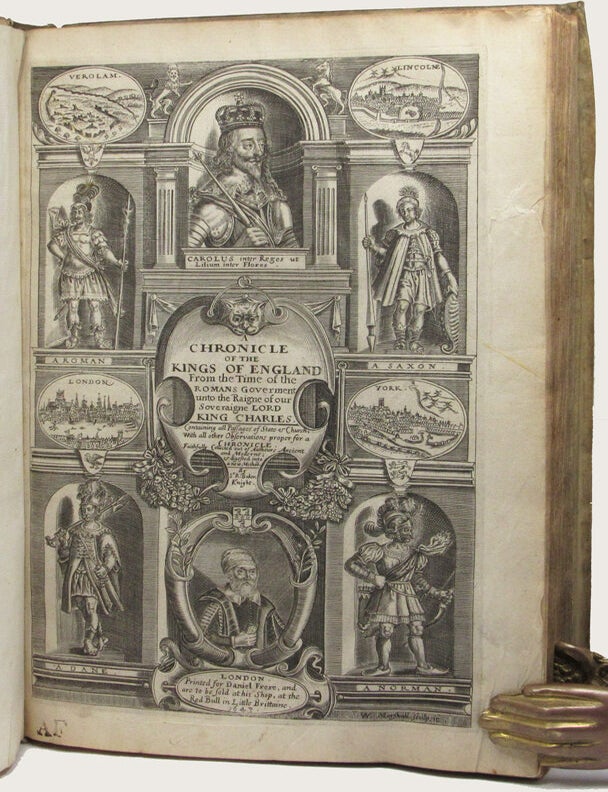 VEROLAM.
LINCOLNE
CAROLUS inter Reges ut
Lilium inter Flores.
A ROMAN
A SAXON.
A
CHRONICLE
OF THE
KINGS OF ENGLAND
From the Time of the
ROMANS Goverment
unto the Raigne of our
Soveraigne LORD
KING CHARLES
Containing all Passages of State & Church
With all other Observations proper for a
CHRONICLE
Faithfully Collected out of Authours Ancient
and Moderne; &
digested into
a new Method.
By
Sr. R. Baker
Knight.
LONDON
YORK.
A DANE.
A NORMAN.
LONDON
Printed for Daniel Frere, and
are to be sold at his Shop, at the
Red Bull in Little Brittaine.
W. Marshall sculpsit
AF